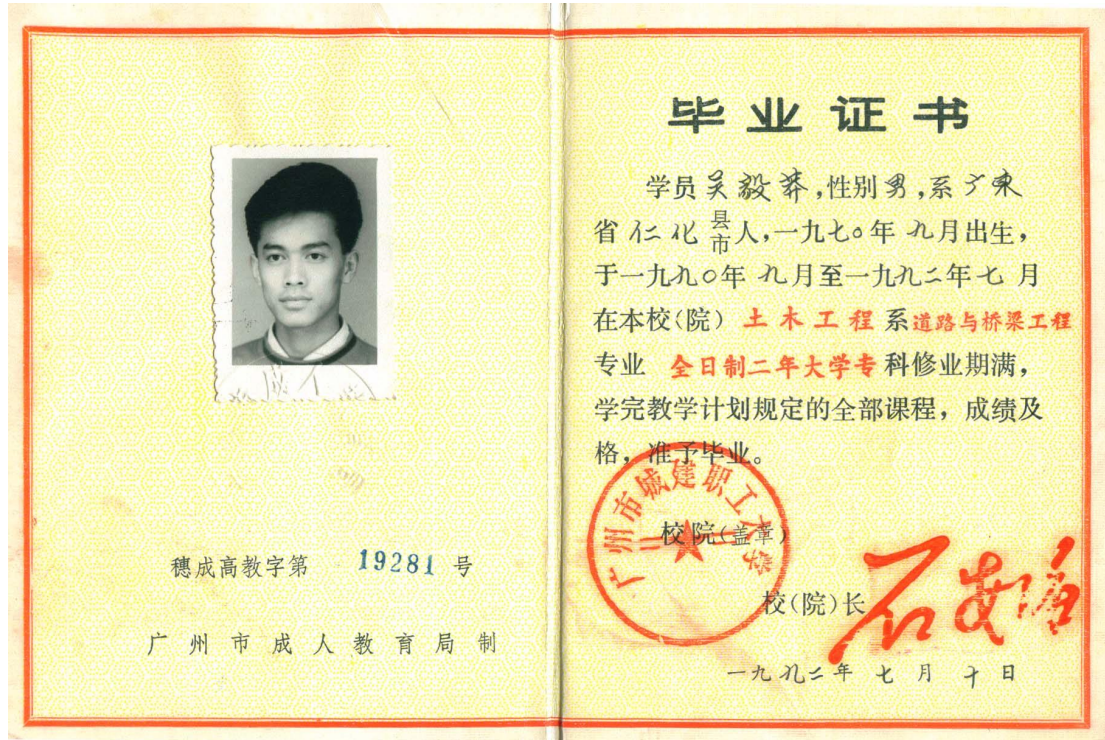 穗成高教字第 19281 号
广州市成人教育局制
毕业证书
学员吴毅莽,性别男,系广东
省仁化县市人,一九七〇年九月出生,
于一九九〇年九月至一九九二年七月
在本校(院)土木工程系道路与桥梁工程
专业 全日制二年大学专科修业期满,
学完教学计划规定的全部课程,成绩及
格,准予毕业。
广州市城建职工大学
校院(盖章)
校(院)长
一九九二年七月十日